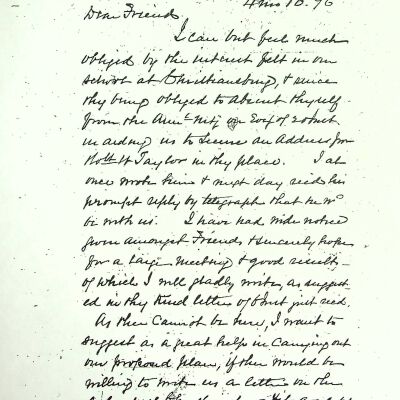 4mo 10. 76
Dear Friend
I can but feel much
obliged by the interest felt in our
school at Christiansburg, & since
thy being obliged to absent thyself
from the Annl Mtg on Evg of
in aiding us to secure an Address from
Taylor in thy place. I at
once wrote him & next day recd his
prompt reply by telegraph that he wd
be with us. I have had wide notice
given amongst Friends & sincerely hope
for a large meeting & good results
of which I will gladly write, as suggest
ed in thy kind letter of just recd.
As thee cannot be here, I want to
suggest as a great help in carrying out
our proposed plan, if thee would be
willing to write us a letter on the